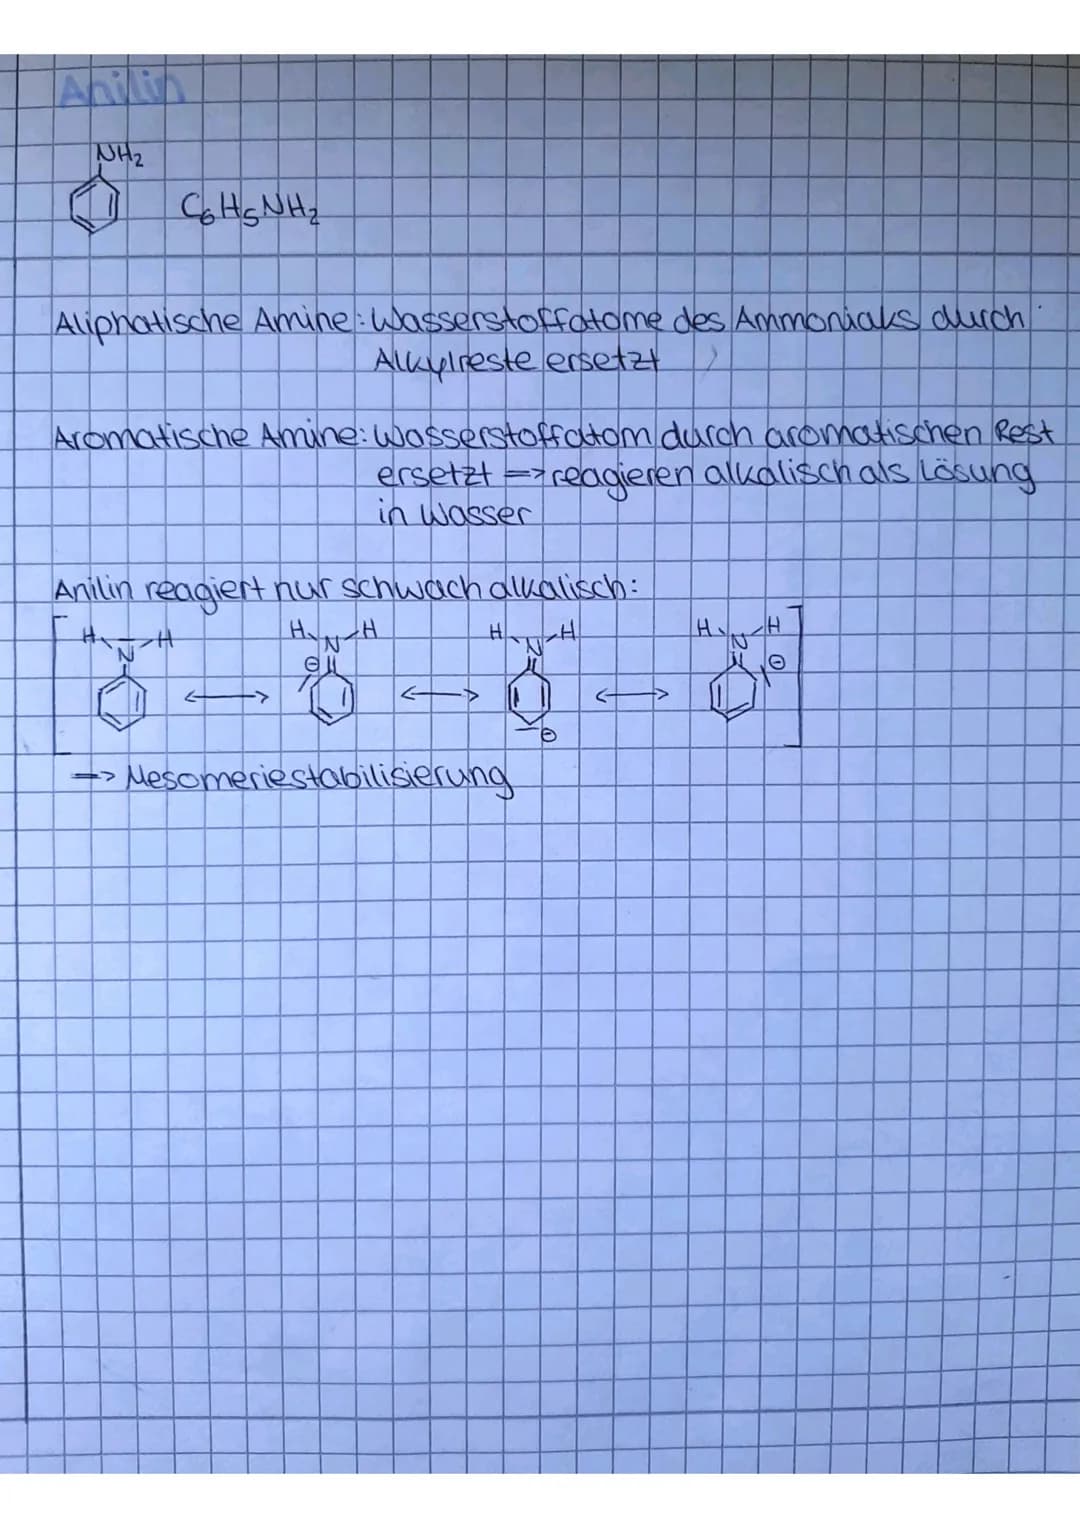 Anilin
NH₂
C₆H₅NH₂
Aliphatische Amine: Wasserstoffatome des Ammoniaks durch
Alkylreste ersetzt
Aromatische Amine: Wasserstoffatom durch aromatischen Rest
ersetzt => reagieren alkalisch als Lösung
in Wasser
Anilin reagiert nur schwach alkalisch:
H N H ⟷ H N H ⊖ ⟷ H N H ⊖ ⟷ H N H ⊖
=> Mesomeriestabilisierung